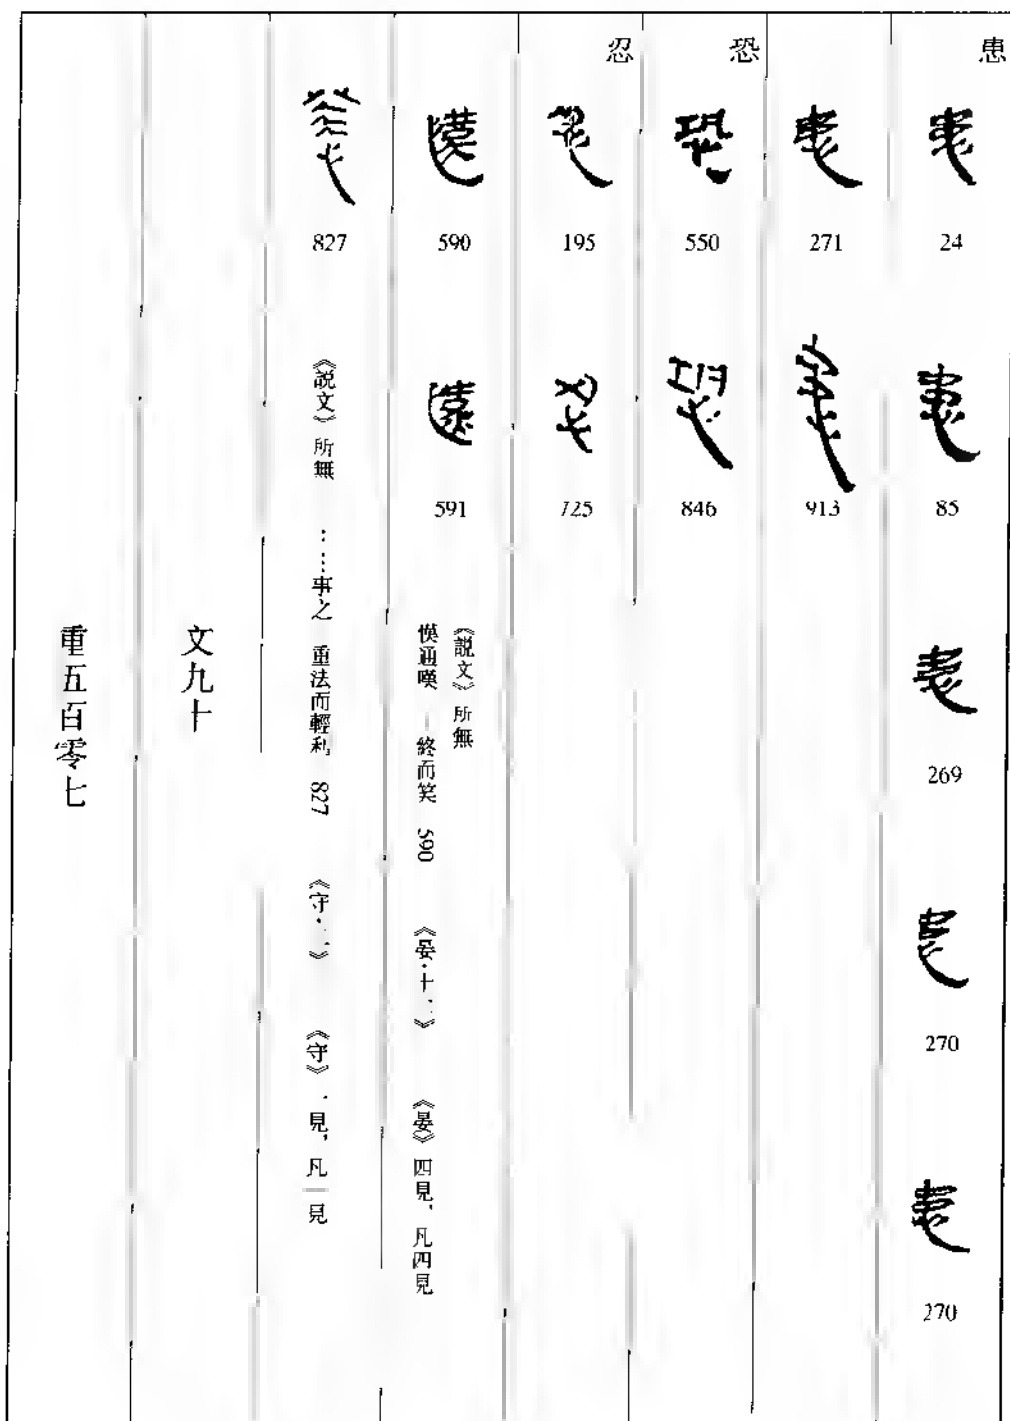 患
24
85
269
270
270
271
913
恐
550
846
忍
195
725
590
591
《説文》所無
懊通嘆 — 終而笑 590 《晏·十》 《晏》四見，凡四見
827
《説文》所無 ……事之 重法而輕利 827 《守·》 《守》一見，凡一見
文九十
重五百零七